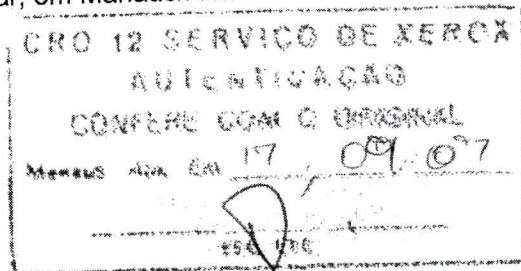 em Manaus
CRO 12 SERVIÇO DE XEROX
AUTENTICAÇÃO
CONFERE COM O ORIGINAL
Manaus Am, Em 17, 09, 07